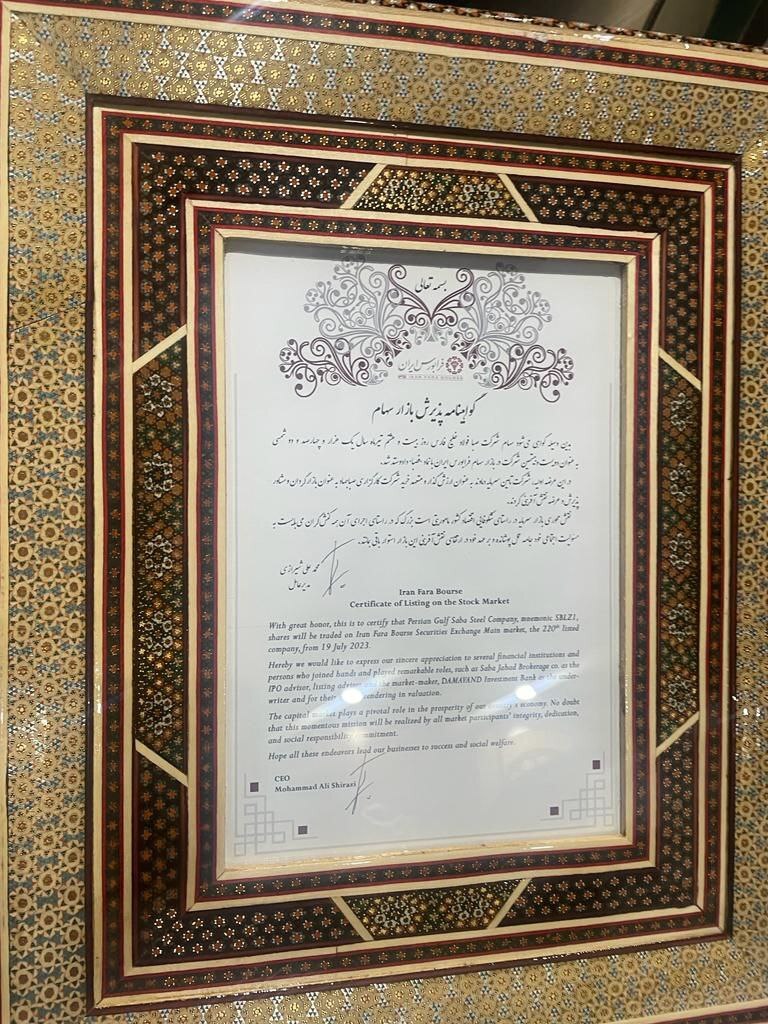 بسمه تعالی
فرابورس ایران
IRAN FARA BOURSE
گواهینامه پذیرش بازار سهام
بدین وسیله گواهی می‌شود سهام شرکت صبا فولاد خلیج فارس روز بیست و هشتم تیرماه سال یک هزار و چهارصد و دو شمسی
به عنوان دویست و بیستمین شرکت در بازار سهام فرابورس ایران با نماد دادوستد شد.
در این عرضه اولیه، شرکت تأمین سرمایه دماوند به عنوان ارزش‌گذار و متعهد خرید شرکت کارگزاری صباجهاد به عنوان بازارگردان و مشاور
پذیرش و عرضه نقش آفرینی کردند.
نقش محوری بازار سرمایه در راستای شکوفایی اقتصاد کشور ماموریتی است بزرگ که در راستای اجرای آن همه کنش‌گران می‌بایست به
مسئولیت اجتماعی خود جامه عمل پوشانده و بر عهد خود در ارتقای نقش آفرینی این بازار استوار باقی بمانند.
محمد علی شیرازی
مدیرعامل
Iran Fara Bourse
Certificate of Listing on the Stock Market
With great honor, this is to certify that Persian Gulf Saba Steel Company, mnemonic SBLZ1,
shares will be traded on Iran Fara Bourse Securities Exchange Main market, the 220th listed
company, from 19 July 2023.
Hereby we would like to express our sincere appreciation to several financial institutions and
persons who joined hands and played remarkable roles, such as Saba Jahad Brokerage co. as the
IPO advisor, listing advisor and the market-maker, DAMAVAND Investment Bank as the under-
writer and for their rendering in valuation.
The capital market plays a pivotal role in the prosperity of our country's economy. No doubt
that this momentous mission will be realized by all market participants' integrity, dedication,
and social responsibility commitment.
Hope all these endeavors lead our businesses to success and social welfare.
CEO
Mohammad Ali Shirazi